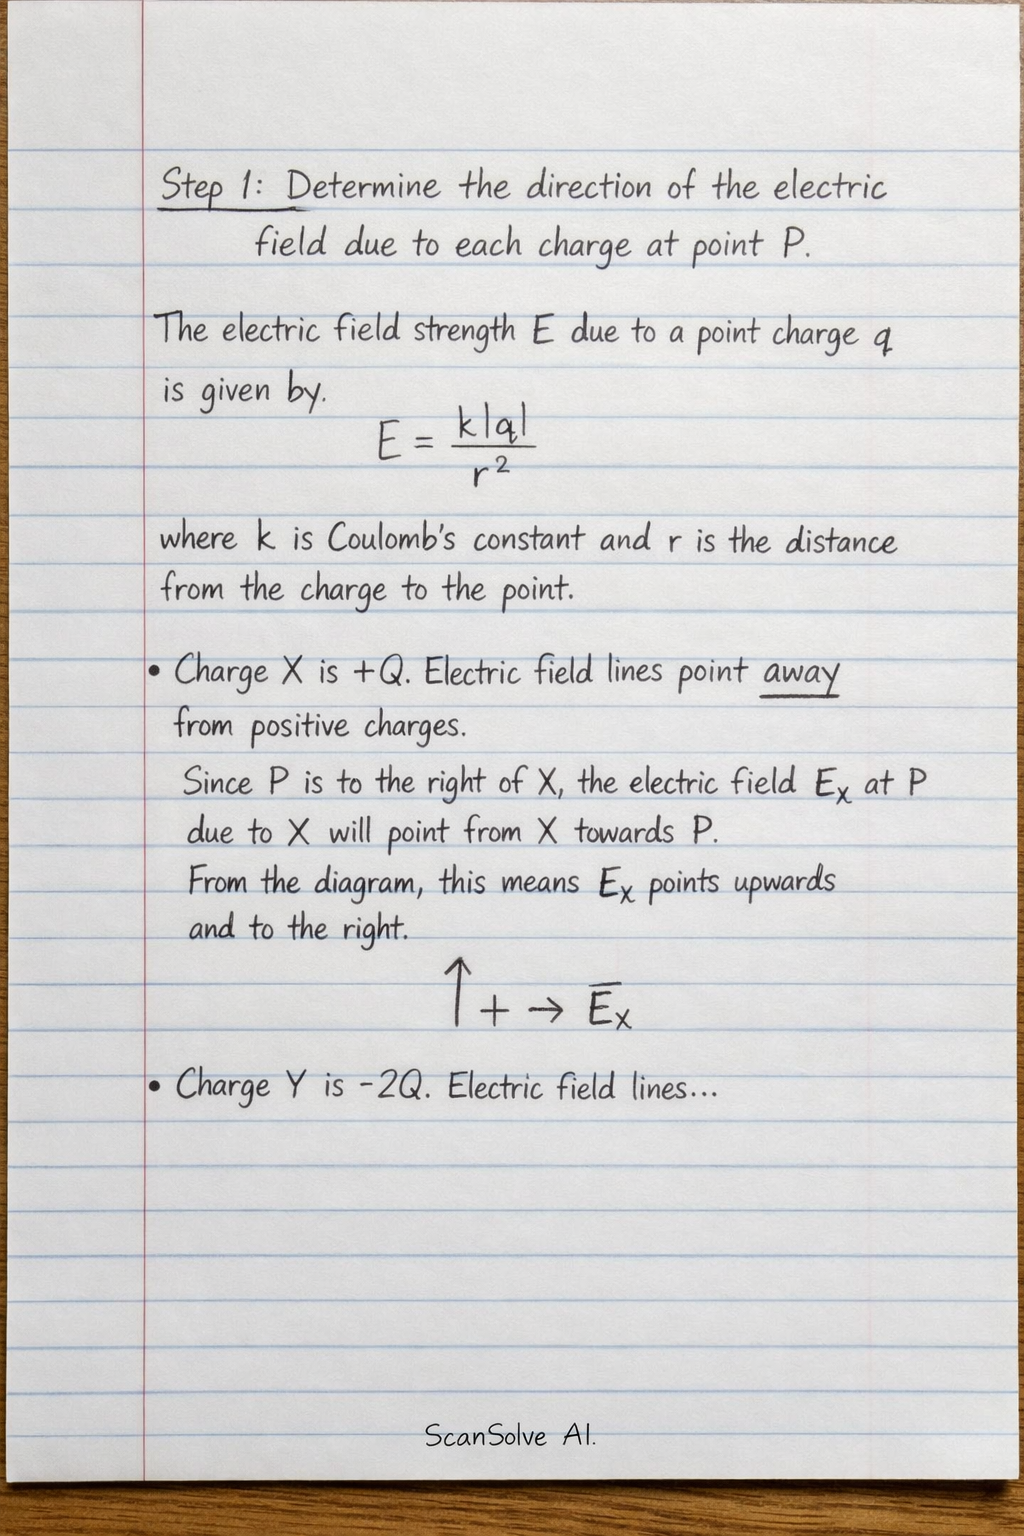 Step 1: Determine the direction of the electric
field due to each charge at point P.
The electric field strength E due to a point charge q
is given by.
E = k|q| / r²
where k is Coulomb's constant and r is the distance
from the charge to the point.
• Charge X is +Q. Electric field lines point away
from positive charges.
Since P is to the right of X, the electric field Eₓ at P
due to X will point from X towards P.
From the diagram, this means Eₓ points upwards
and to the right.
↑ + → E̅ₓ
• Charge Y is -2Q. Electric field lines...
ScanSolve AI.